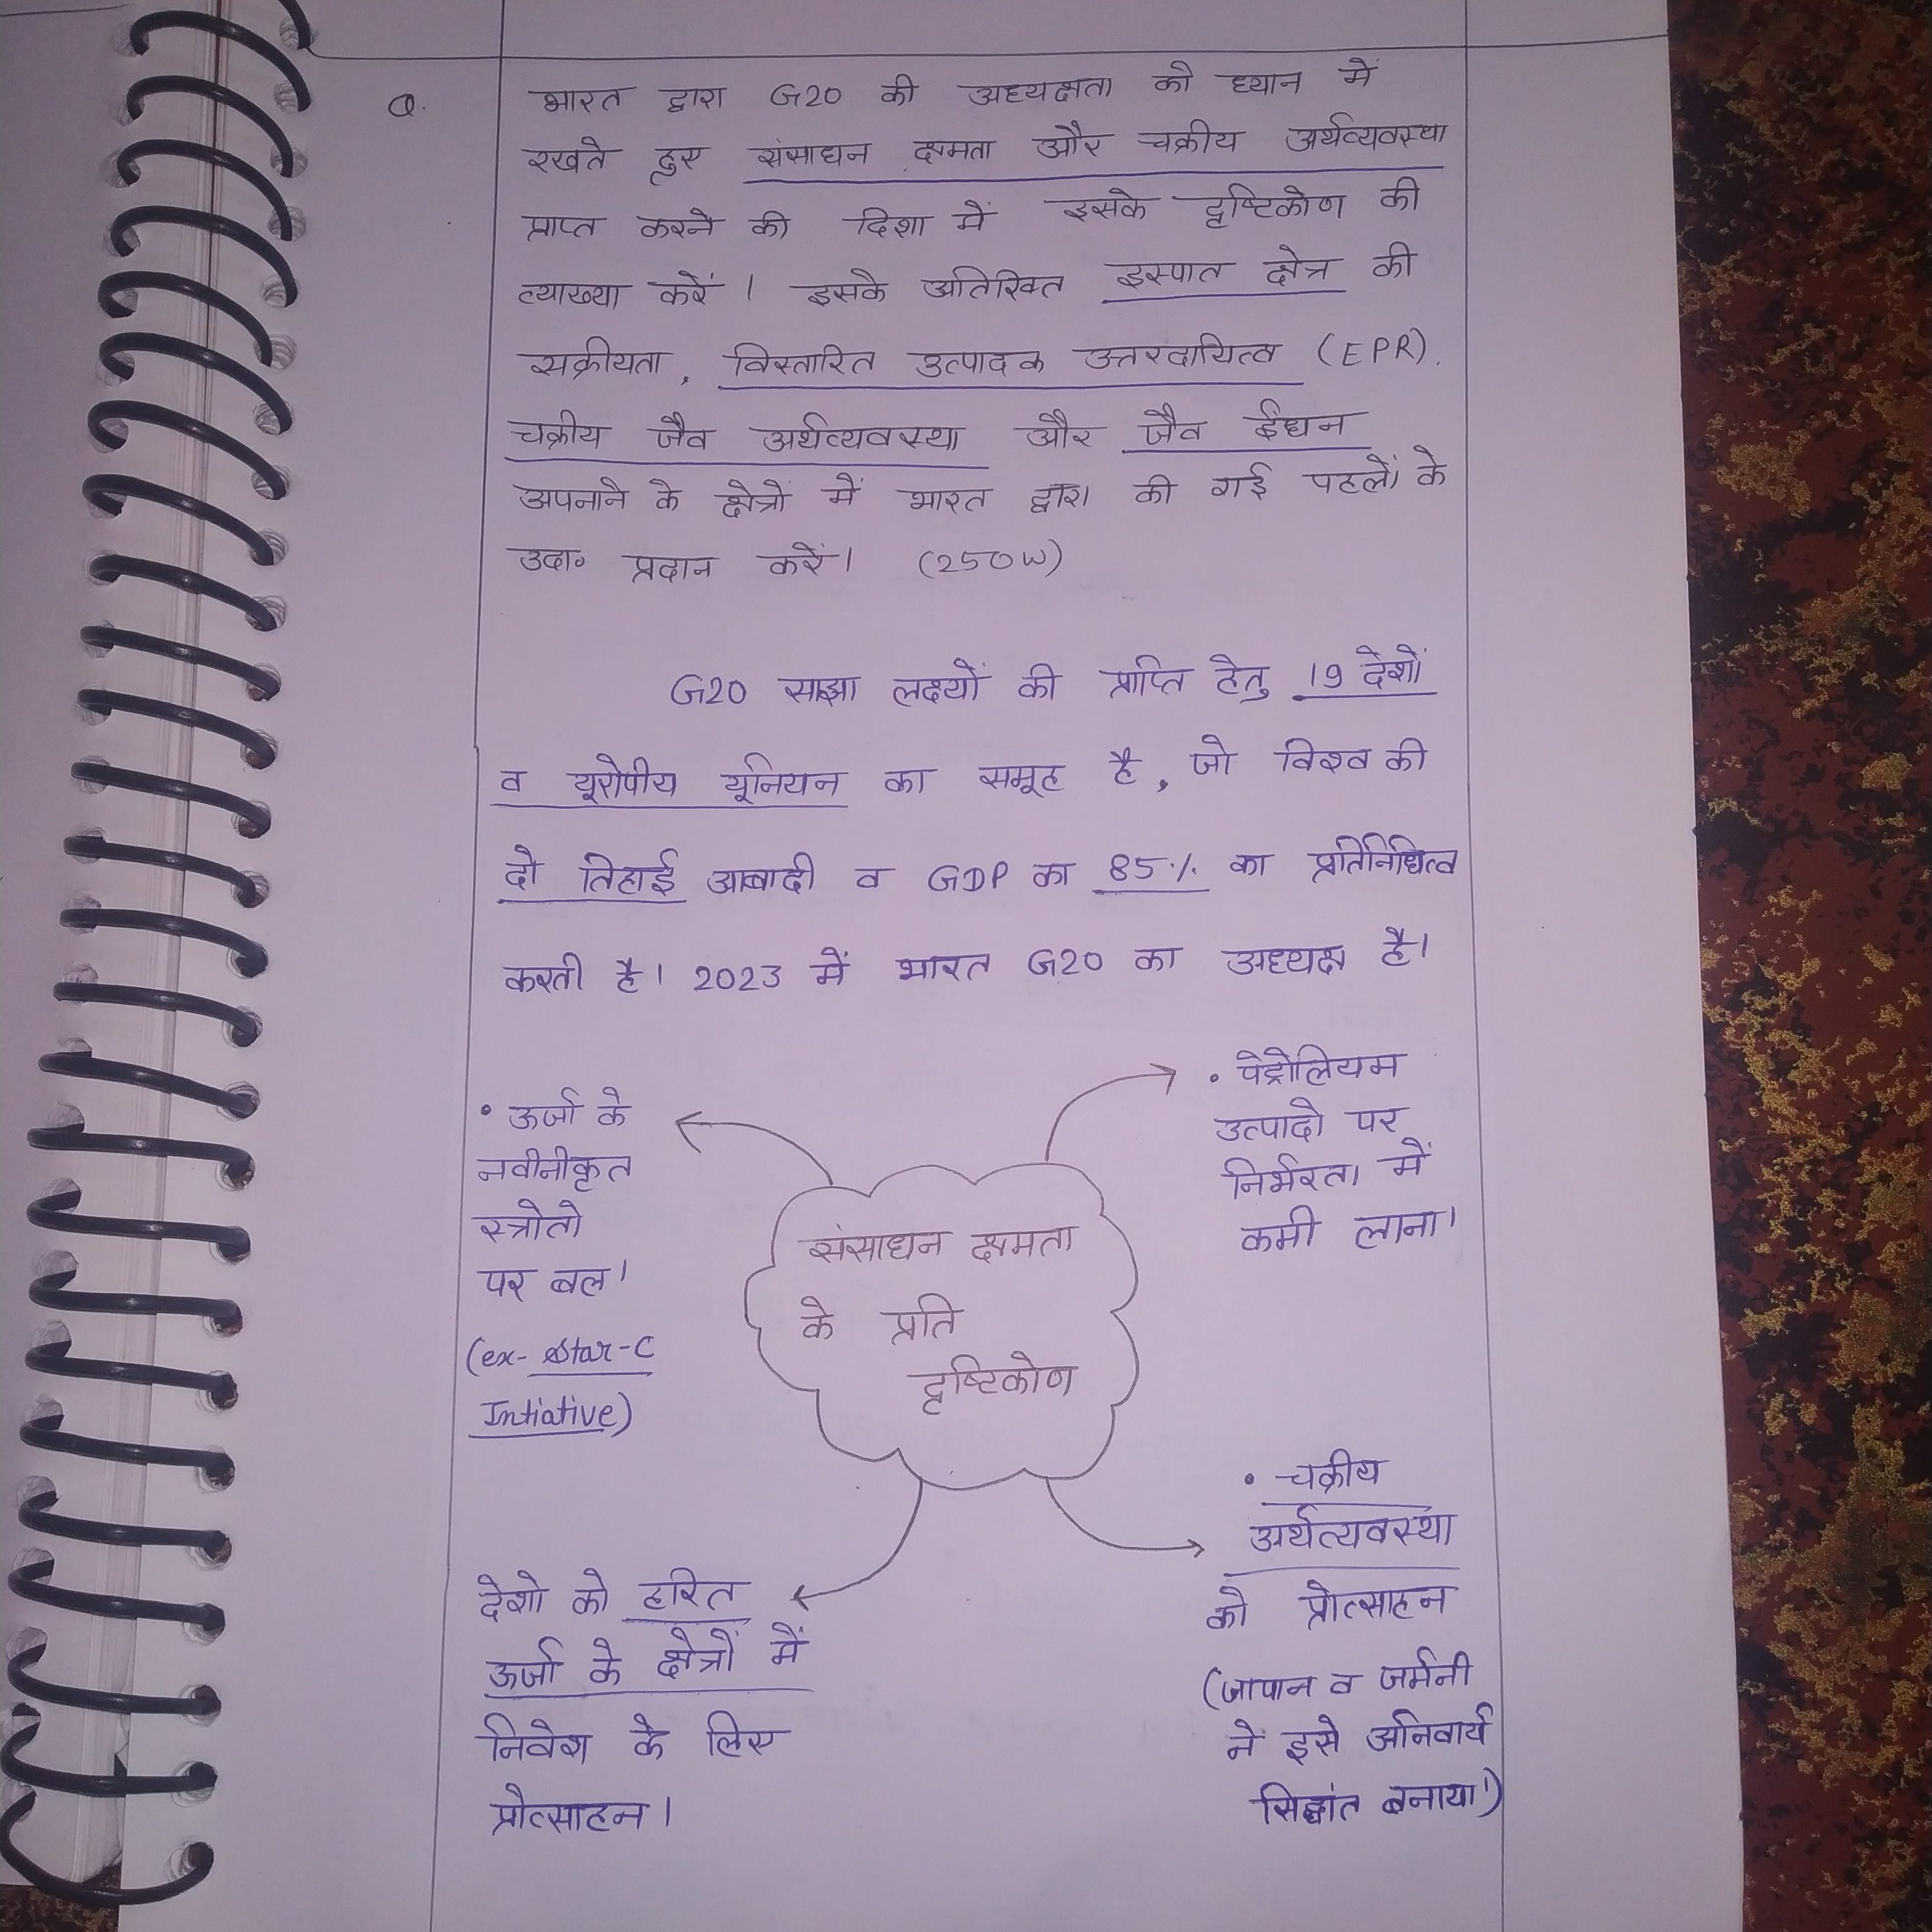 Q. भारत द्वारा G20 की अध्यक्षता को ध्यान में
रखते हुए संसाधन क्षमता और चक्रीय अर्थव्यवस्था
प्राप्त करने की दिशा में इसके दृष्टिकोण की
व्याख्या करें। इसके अतिरिक्त इस्पात क्षेत्र की
सक्रीयता, विस्तारित उत्पादक उत्तरदायित्व (EPR),
चक्रीय जैव अर्थव्यवस्था और जैव ईंधन
अपनाने के क्षेत्रों में भारत द्वारा की गई पहलों के
उदा० प्रदान करें। (250W)
G20 साझा लक्ष्यों की प्राप्ति हेतु 19 देशों
व यूरोपीय यूनियन का समूह है, जो विश्व की
दो तिहाई आबादी व GDP का 85% का प्रतिनिधित्व
करती है। 2023 में भारत G20 का अध्यक्ष है।
• ऊर्जा के
नवीनीकृत
स्त्रोतो
पर बल।
(ex- Star-C
Intiative)
• पेट्रोलियम
उत्पादो पर
निर्भरता में
कमी लाना।
संसाधन क्षमता
के प्रति
दृष्टिकोण
देशो को हरित
ऊर्जा के क्षेत्रों में
निवेश के लिए
प्रोत्साहन।
• चक्रीय
अर्थव्यवस्था
को प्रोत्साहन
(जापान व जर्मनी
ने इसे अनिवार्य
सिद्धांत बनाया।)